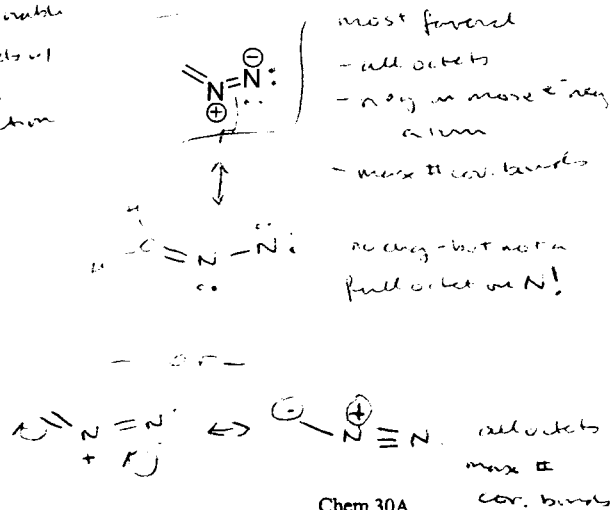 most favored
- all octets
- neg on more e⁻ neg
atom
- max # cov. bonds
⊖
N=N:
⊕
H
H C = N - N :
no chg - but not a
full octet on N!
- or -
N = N
+
↔
⊖ ⊕
N ≡ N
all octets
max #
cov. bonds
Chem 30A